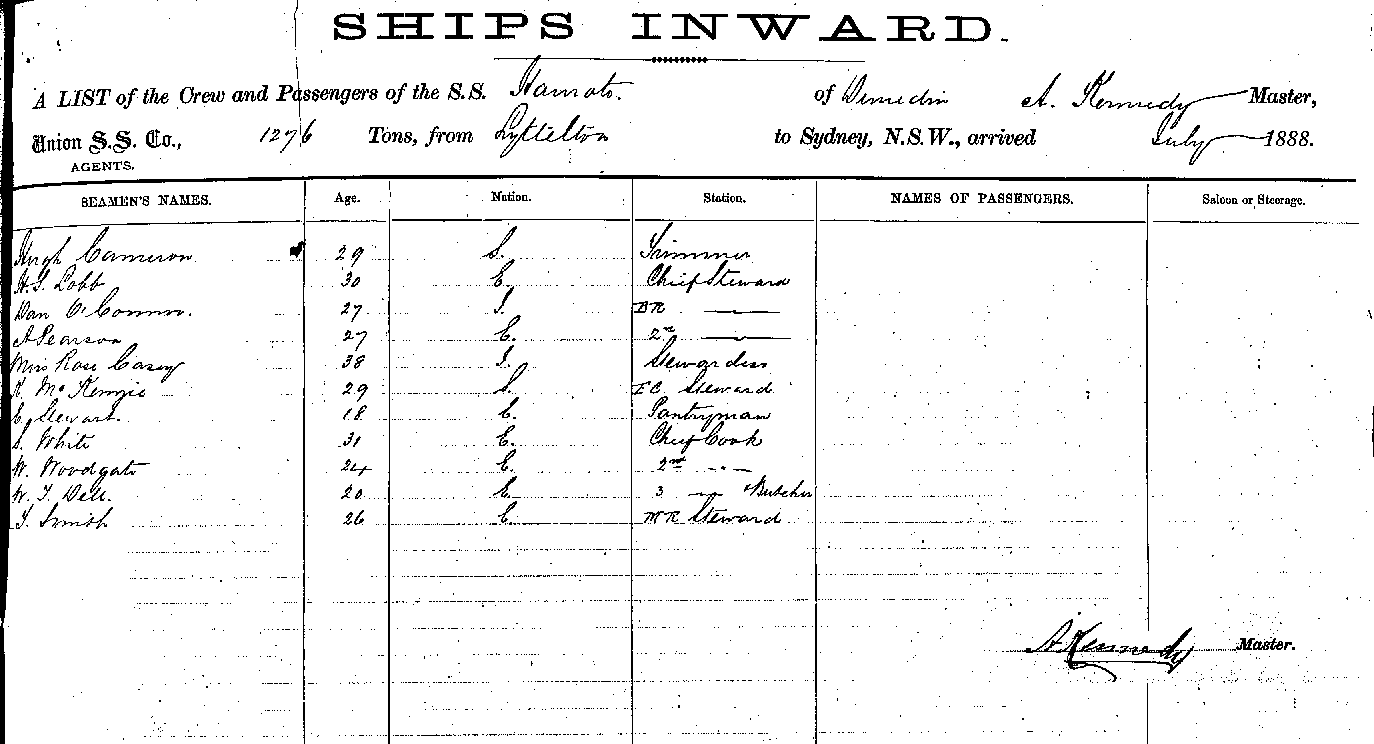 SHIPS INWARD.
A LIST of the Crew and Passengers of the S.S. of Dunedin A. Kennedy Master,
Union S.S. Co., 1276 Tons, from Lyttelton to Sydney, N.S.W., arrived July 1888.
AGENTS.
SEAMEN'S NAMES. Age. Nation. Station. NAMES OF PASSENGERS. Saloon or Steerage.
Hugh Cameron 29 S. Trimmer
30 E. Chief Steward
Dan O'Connor. 27 I. BR —
A Pearson 27 E. 2nd —
Miss Rose Casey 38 I. Stewardess
K. McKenzie 29 S. FC Steward
E. Stewart 18 E. Pantryman
S. White 31 E. Chief Cook
W. Woodgate 24 E. 2nd - " -
W. J. Dell. 20 E. 3 - " - & Butcher
J. Smith 26 E. MR Steward
A Kennedy Master.